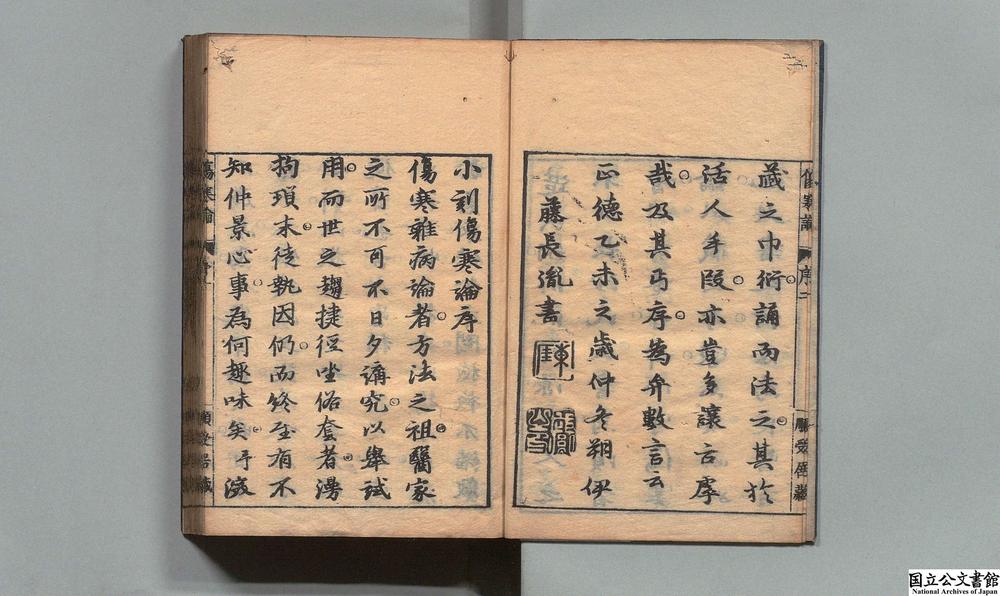 傷寒論 序二
藏之巾衍誦而法之其於
活人手段亦豈多讓古摩
哉及其丐序為弁數言云
正德乙未之歲仲冬朔伊
藤長胤書
小刻傷寒論序
傷寒雜病論者方法之祖醫家
之所不可不日夕講究以舉試
用而世之趨捷徑坐俗套者漫
拘瑣末徒執因仍而終至有不
知仲景心事為何趣味矣予
傷寒論
国立公文書館
National Archives of Japan